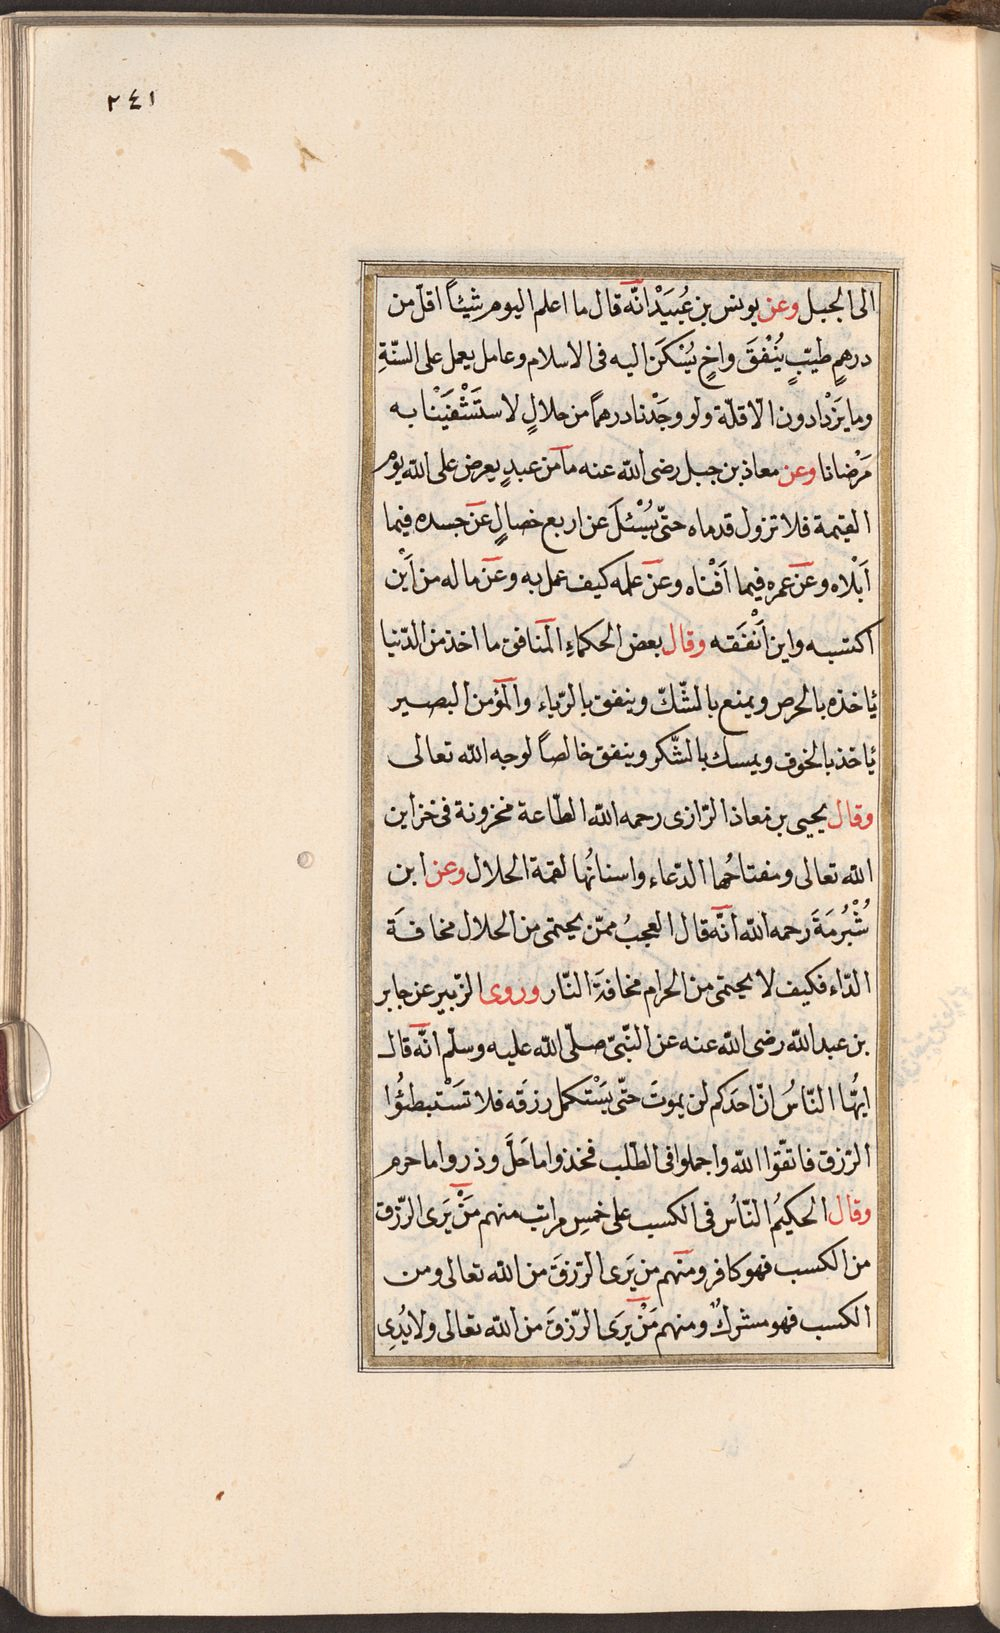 ٢٤١
الى الجبل وعن يونس بن عُبَيْد انّه قال ما اعلم اليوم شيئاً اقلّ من
درهمٍ طيّبٍ يُنْفَقَ واخٍ يُسْكَنَ اليه فى الاسلام وعامل يعمل على السنّةِ
وما يَزْدادون الّا قلّة ولو وجَدْنا درهمًا من حلالٍ لاستَشْفَيْنا به
مَرْضانا وعن معاذ بن جبل رضى اللّه عنه ما من عبدٍ يعرض على اللّه يوم
القيمة فلا تزول قدماه حتّى يُسْئلَ عن اربع خصالٍ عن جسده فيما
اَبْلاه وعن عمره فيما اَفْناه وعن علمه كيف عمل به وعن ماله من اَيْن
اكتسبه واين اَنْفَقه وقال بعض الحكماءِ المنافق ما اخذ من الدّنيا
ئاخذه بالحرص ويمنع بالشّكّ وينفق بالرّياء والمؤمن البصير
ئاخذ بالخوف ويمسك بالشّكر وينفق خالصاً لوجه اللّه تعالى
وقال يحيى بن معاذ الرّازى رحمه اللّه الطّاعة مخزونة فى خزاين
اللّه تعالى ومفتاحُها الدّعاء واسنانُها لقمة الحلال وعن ابن
شُبْرُمَةَ رحمه اللّه انّه قال العجبُ ممّن يحتمى من الحلال مخافَة
الدّاء فكيف لا يحتمى من الحرام مخافَة النّار وروى الزّبير عن جابر
بن عبد اللّه رضى اللّه عنه عن النّبىّ صلّى اللّه عليه وسلّم انّه قال
ايّها النّاسُ انّ احدَكم لن يموتَ حتّى يَسْتكمل رزقَه فلا تَسْتبطئُوا
الرّزق فاتّقوا اللّه واجملوا فى الطّلب فخذوا ما حَلَّ وذروا ما حرم
وقال الحكيمُ النّاسُ فى الكسب على خمسِ مراتب منهم مَنْ يَرى الرّزق
من الكسب فهو كافر ومنهم من يَرَى الرّزقَ من اللّه تعالى ومن
الكسب فهو مشركٌ ومنهم مَنْ يَرَى الرّزقَ من اللّه تعالى ولا يُدِى